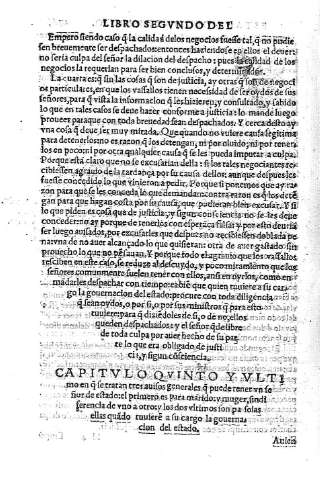 LIBRO SEGVNDO DEL
Empero siendo caso q̃ la calidad de los negocios fuesse tal, q̃ no pudie
sen breuemente ser despachados: entonces haziendose en ellos el deuer:
no seria culpa del señor la dilacion del despacho: pues la calidad de los
negocios la requerian para ser bien conclusos, y determinados.
La quarta es q̃ sin las cosas q̃ son de justicia, ay otras q̃ son de negoci
os particulares, en que los vassallos tienen necesidad de ser oydos de sus
señores, para q̃ vista la informacion q̃ les hizieren, y consultado, y sabido
lo que en tales casos se deue hazer conforme a justicia: lo mande luego
proueer para que con toda breuedad sean despachados. Y cerca desto ay
vna cosa q̃ deue ser muy mirada. Que quando no vuiere causa legitima
para detenerlos: no es razon q̃ los detengan, ni por oluido, ni por tener
los en poco: ni por otra qual quier causa q̃ se les pueda imputar a culpa.
Porque està claro que no se escusarian della: si los tales negociantes re
cibiessen agrauio de la tardança por su causa dellos: aunque despues les
fuesse concedido lo que vinieron a pedir. Porque si ponemos que ay ra
zon para que se les conceda lo que demandan: contra razon es q̃ los deten
gan para que hagan costa por su causa, que pudieran bien escusar. Y si
lo que piden es cosa que de justicia, y sigun consciencia no se les deue
conceder: no ay porque de tenerlos con esperança falsa: y por esto deuria
ser luego auisados, por escusarles que despues no recibiessen doblada pe
na: vna de no auer alcançado lo que quisieran: otra de auer gastado sin
prouecho lo que no pensauan. Y porque todo el agrauio que los vassallos
resciben en este caso, se reduze al descuydo, y poco miramiento que los
señores comunmente suelen tener con ellos, ansi en oyrlos, como en
madarles despachar con tiempo: esté que quien tuuiere a su car
go la gouernacion del estado: procure con toda diligencia
q̃ sean oydos, o por si, o por sus ministros q̃ para esto
tuuiere: para q̃ diziédoles de si, o de no, ellos
queden despachados: y el señor q̃de libre
de toda culpa por auer hecho de su par
te lo que era obligado de justi
cia, y sigun cõsciencia.
CAPITVLO QVINTO Y VLTI
mo en q̃ se tratan tres auisos generales q̃ puede tener vn se
ñor de estado: el primero es para marido: y muger, sin di
ferencia de vno a otro: y los dos vltimos son para solas
ellas quãdo tuuiere a su cargo la gouerna
cion del estado.